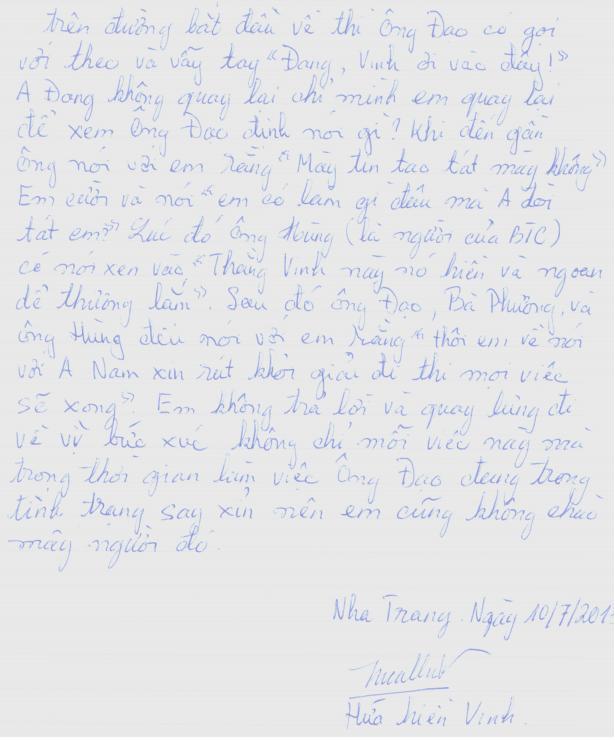 trên đường bắt đầu về thì Ông Đạo có gọi
với theo và vẫy tay "Đang, Vinh ơi vào đây!"
A Đang không quay lại chỉ mình em quay lại
để xem Ông Đạo định nói gì? Khi đến gần
Ông nói với em rằng "Mày tin tao tát mày không"
Em cười và nói "em có làm gì đâu mà A đòi
tát em?" Lúc đó Ông Hùng (là người của BTC)
có nói xen vào "Thằng Vinh này nó hiền và ngoan
dể thương lắm". Sau đó ông Đạo, Bà Phường, và
ông Hùng đều nói với em rằng "thôi em về nói
với A Nam xin rút khỏi giải đi thì mọi việc
sẽ xong". Em không trả lời và quay lưng đi
về vì bức xúc không chỉ mỗi việc này mà
trong thời gian làm việc Ông Đạo đang trong
tình trạng say xỉn nên em cũng không chào
mấy người đó.
Nha Trang. Ngày 10/7/201
Hứa hiền Vinh.